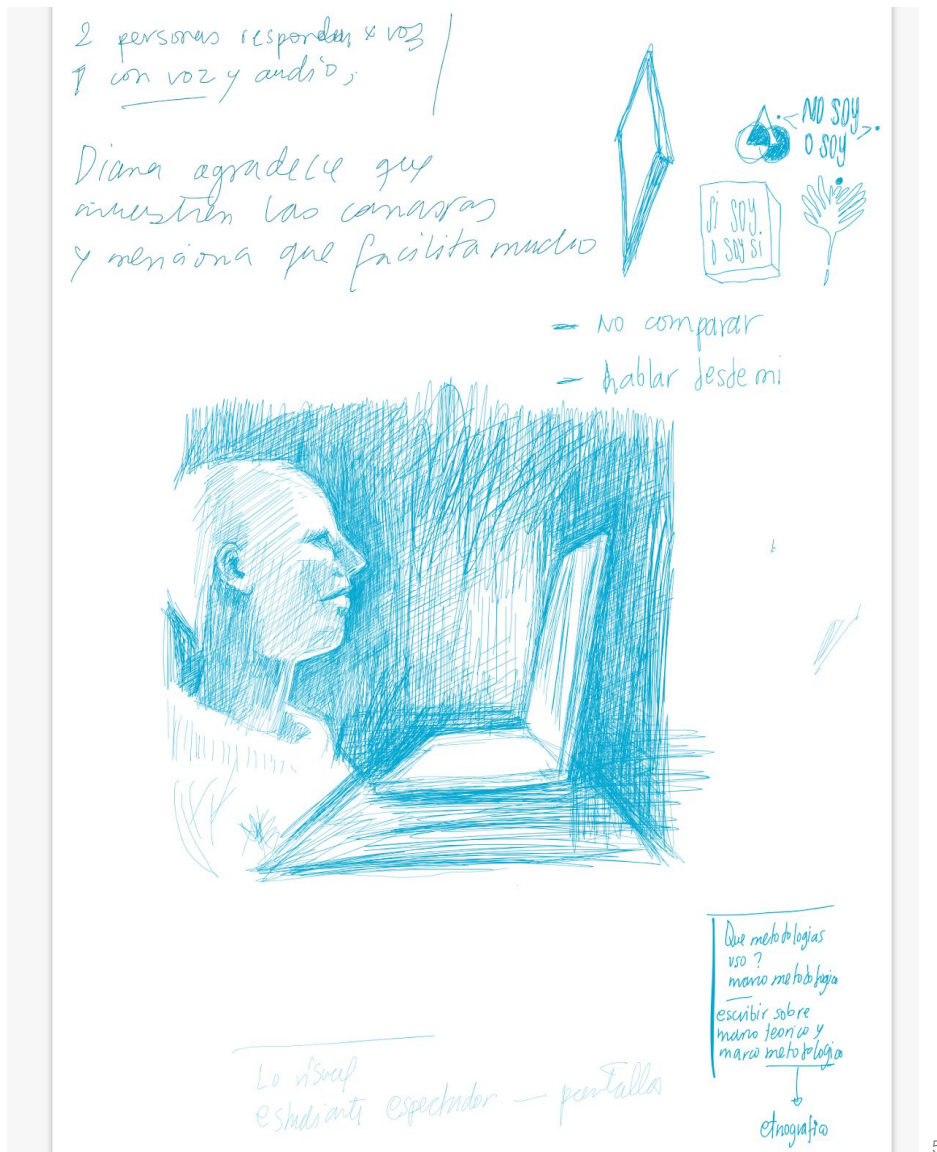 2 personas responden x voz
1 con voz y audio;
Diana agradece que
muestren las camaras
y menciona que facilita mucho
NO SOY
O SOY
SI SOY.
O SOY SI
- No comparar
- hablar desde mi
Que metodologias
uso ?
marco metodologico
escribir sobre
marco teorico y
marco metodologico
etnografico
Lo visual
estudiante espectador — pantallas